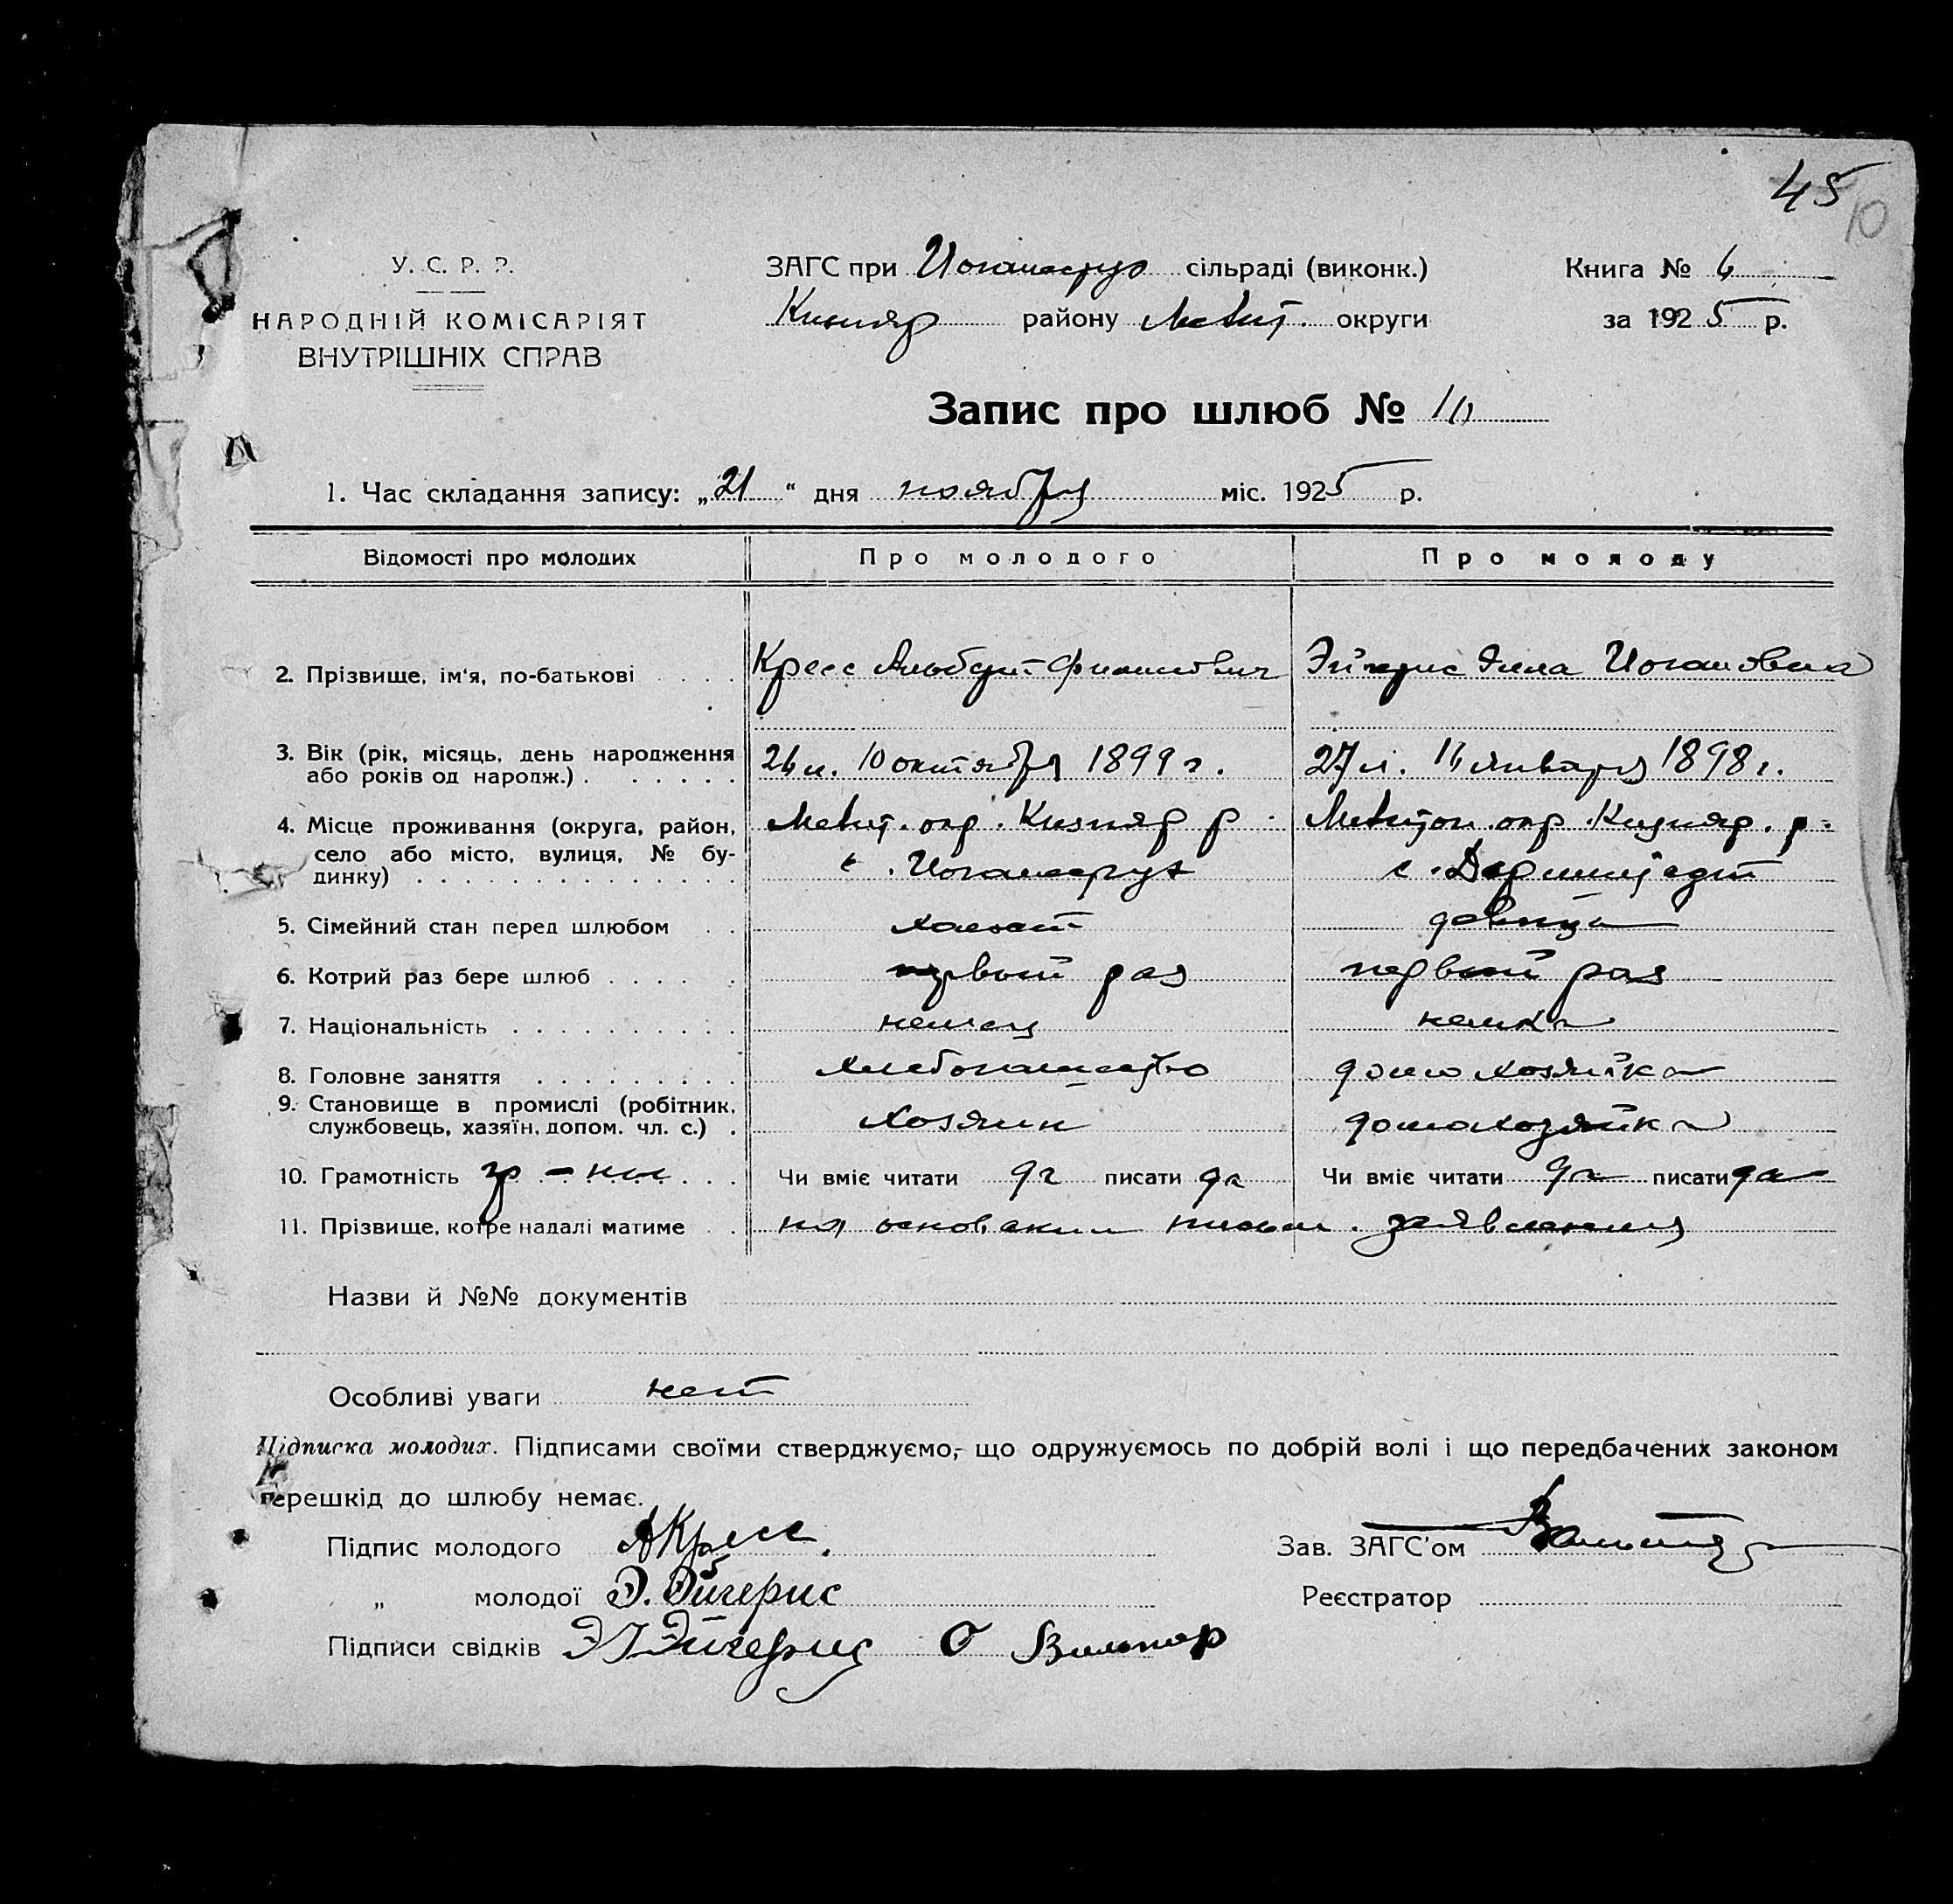 45
10
У. С. Р. Р.
ЗАГС при Иоганесру сільраді (виконк.)
Книга № 6
НАРОДНІЙ КОМІСАРІЯТ
району Мелит. округи
за 1925 р.
ВНУТРІШНІХ СПРАВ
Запис про шлюб №
1. Час складання запису: „21“ дня ноября міс. 1925 р.
Відомості про молодих
Про молодого
Про молоду
2. Прізвище, ім'я, по-батькові . . . .
Кресс Альберт
Эйгерис Элла Иогановна
3. Вік (рік, місяць, день народження
або років од народж.) . . . . . .
26 л. 10 октября 1899 г.
27 л. января 1898 г.
4. Місце проживання (округа, район,
Мелит. окр. Кизляр р.
Мелитоп. окр. Кизляр. р.
село або місто, вулиця, № бу-
динку) . . . . . . . . . . . . . .
с. Иоганесру
с.
5. Сімейний стан перед шлюбом . .
холост
девица
6. Котрий раз бере шлюб . . . . .
первый раз
первый раз
7. Національність . . . . . . . . . .
немец
немка
8. Головне заняття . . . . . . . . .
хлебопашество
домохозяйка
9. Становище в промислі (робітник,
службовець, хазяїн, допом. чл. с.) .
хозяин
домохозяйка
10. Грамотність
Чи вміє читати да писати да
Чи вміє читати да писати да
11. Прізвище, котре надалі матиме . .
на основании письм. заявления
Назви й №№ документів
Особливі уваги нет
Підписка молодих. Підписами своїми стверджуємо, що одружуємось по добрій волі і що передбачених законом
перешкід до шлюбу немає.
Підпис молодого АКресс.
Зав. ЗАГС'ом
„ молодої Э. Эйгерис
Реєстратор
Підписи свідків Эйгерис О Вильпер